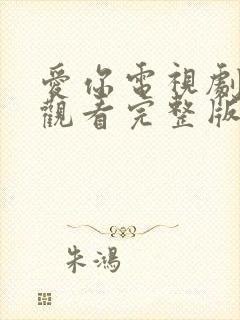 愛你電視劇
觀看完整版
朱鴻